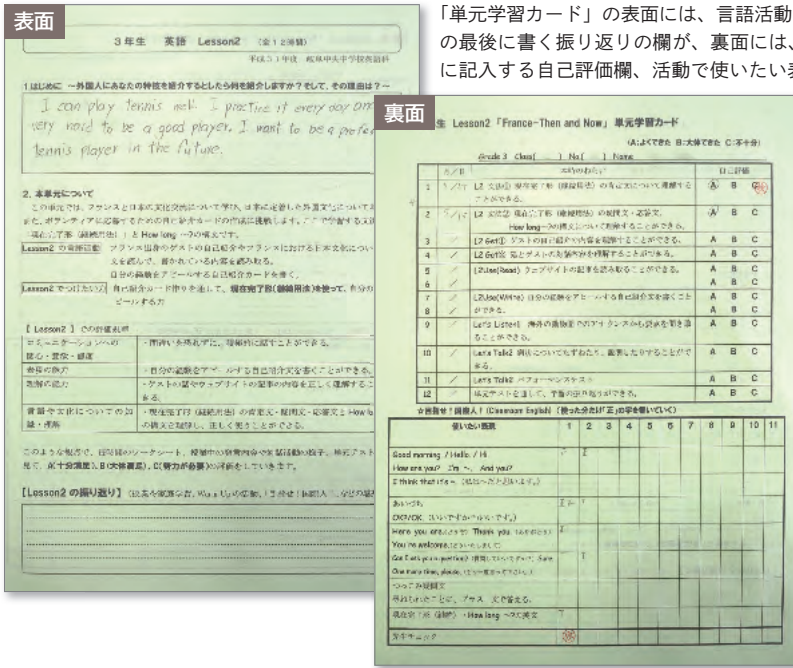 「単元学習カード」の表面には、言語活動
の最後に書く振り返りの欄が、裏面には、
に記入する自己評価欄、活動で使いたい表
表面
3年生 英語 Lesson2 (全12時間)
平成31年度 岐阜中央中学校英語科
1はじめに ~外国人にあなたの特技を紹介するとしたら何を紹介しますか?そして、その理由は?~
I can play tennis well. I practice it every day and
very hard to be a good player. I want to be a
tennis player in the future.
2. 本単元について
この単元では、フランスと日本の文化交流について学び、日本に定着した外国文化について
また、ボランティアに応募するための自己紹介カードの作成に挑戦します。ここで学習する文法
現在完了形(継続用法)」と How long ~?の構文です。
Lesson2 の言語活動 フランス出身のゲストの自己紹介やフランスにおける日本文化につい
文を読んで、書かれている内容を読み取る。
自分の経験をアピールする自己紹介カードを書く。
Lesson2 でつけたい力 自己紹介カード作りを通して、現在完了形(継続用法)を使って、自分の
ピールする力
【 Lesson2 】 での評価規準
コミュニケーションへの
関心・意欲・態度
・間違いを恐れずに、積極的に話すことができる。
表現の能力
・自分の経験をアピールする自己紹介文を書くことができる。
理解の能力
・ゲストの話やウェブサイトの記事の内容を正しく理解するこ
言語や文化についての知
識・理解
・現在完了形(継続用法)の肯定文・疑問文・応答文と How lo
の構文を理解し、正しく使うことができる。
このような観点で、
見て、A(十分満足)、B(大体満足)、C(努力が必要)の評価をしていきます。
【Lesson2 の振り返り】
裏面
生 Lesson2 「France-Then and Now」 単元学習カード
(A:よくできた B:大体できた C:不十分)
Grade 3 Class( ) No( ) Name
月/日 本時のねらい 自己評価
1 L2 文法① 現在完了形 (継続用法) の肯定文について理解する A B C
ことができる。
2 L2 文法② 現在完了形 (継続用法) の疑問文・応答文、 A B C
How long~?の構文について理解することができる。
3 / L2 Get① ゲストの自己紹介の内容を理解することができる。 A B C
4 / L2 Get② 客とゲストの対話内容を理解することができる。 A B C
5 / L2Use(Read) ウェブサイトの記事を読み取ることができる。 A B C
6 /
7 / L2Use(Write) 自分の経験をアピールする自己紹介文を書くこと A B C
8 / ができる。 A B C
9 / Let's Listen1 海外の動物園でのアナウンスから要点を聞き取 A B C
ることができる。
10 / Let's Talk2 A B C
きる。
11 / Let's Talk2 パフォーマンステスト A B C
12 / 単元テストを通して、学習の振り返りができる。 A B C
☆目指せ!国際人! (Classroom English) (使った分だけ「正」の字を書いていく)
使いたい表現 1 2 3 4 5 6 7 8 9 10 11
Good morning / Hello / Hi
How are you? I'm ~. And you?
I think that it's ~.
あいづち
OK?/OK.
Here you are. Thank you.
You're welcome.
Sure
One more time, please.
つっこみ疑問文
現在完了形 (継続)・How long ~?の英文
先生チェック